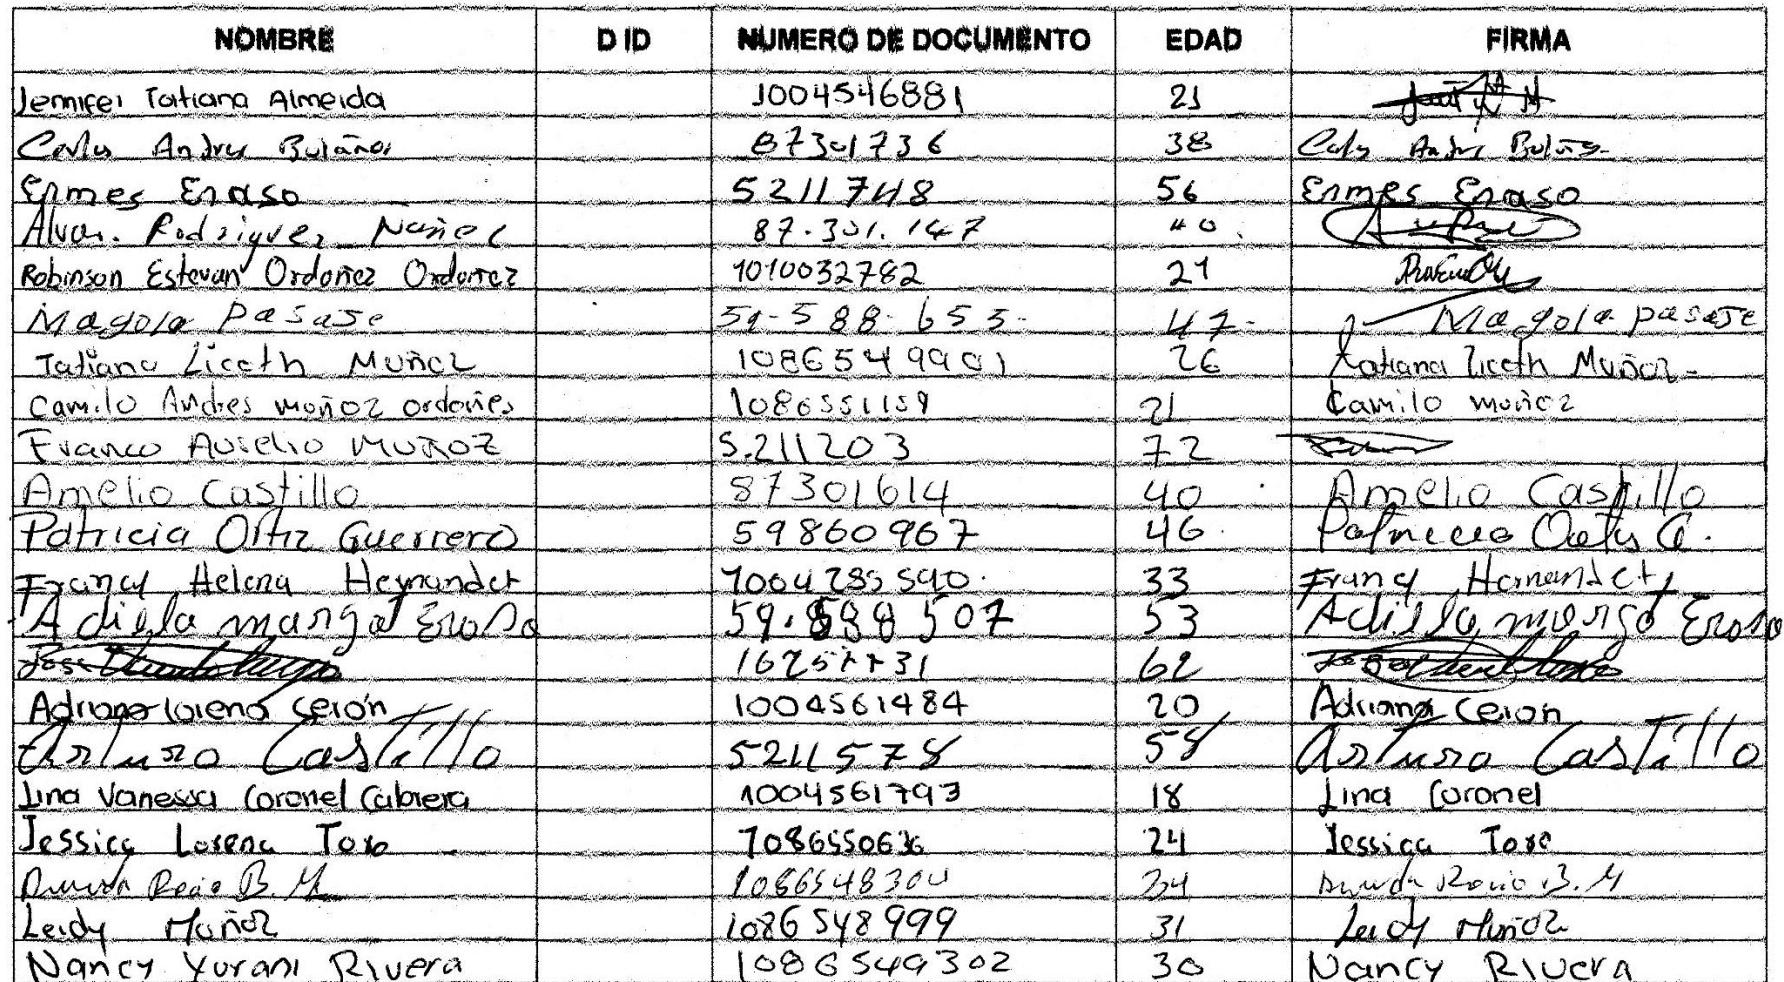 NOMBRE D ID NUMERO DE DOCUMENTO EDAD FIRMA
Jennifer Tatiana Almeida 1004546881 21
Carlos Andres Bolaños 87301736 38 Carlos Andres Bolaños
Ermes Eraso 5211748 56 Ermes Eraso
Alvar. Rodriguez Nuñez 87.301.147 40
Robinson Estevan Ordoñez Ordoñez 1010032782 21
Magola Pasaje 59-588-653- 47- Magola pasaje
Tatiana Liceth Muñoz 1086549901 26 Tatiana Liceth Muñoz
Camilo Andres moñoz ordoñes 1086551159 21 Camilo muñoz
Franco Aurelio MUÑOZ 5.211203 72
Amelio Castillo 87301614 40 Amelio Castillo
Patricia Ortiz Guerrero 59860967 46 Patricia Ortiz G.
Francy Helena Hernandez 1004285590. 33 Francy Hernandez
Adiela margot Eraso 59.588507 53 Adiela margot Eraso
Jose 62 Jose
Adriana lorena Cerón 1004561484 20 Adriana Cerón
Arturo Castillo 5211578 58 Arturo Castillo
Lina Vanessa Coronel Cabrera 1004561793 18 Lina Coronel
Jessica Lorena Toro 1086550636 24 Jessica Toro
Rocio B. M 1086548300 34 Rocio B. M
Leidy Muñoz 1086548999 31 Leidy Muñoz
Nancy Yurani Rivera 1086549302 30 Nancy Rivera